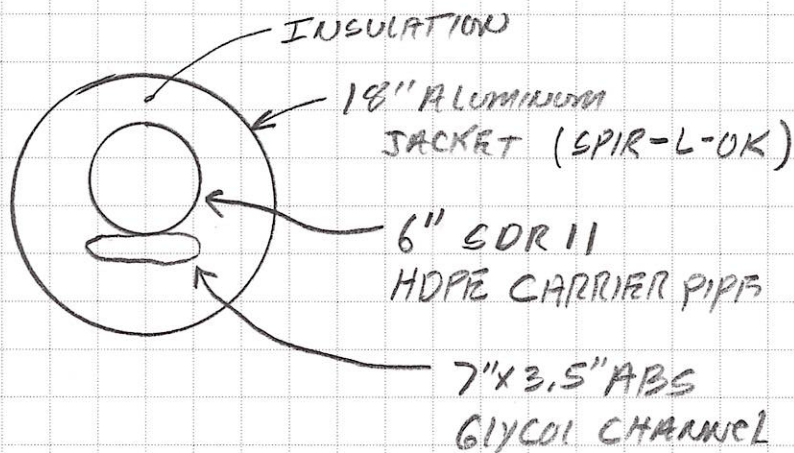 INSULATION
18" ALUMINUM
JACKET (SPIR-L-OK)
6" SDR 11
HDPE CARRIER PIPE
7"X3.5" ABS
GLYCOL CHANNEL